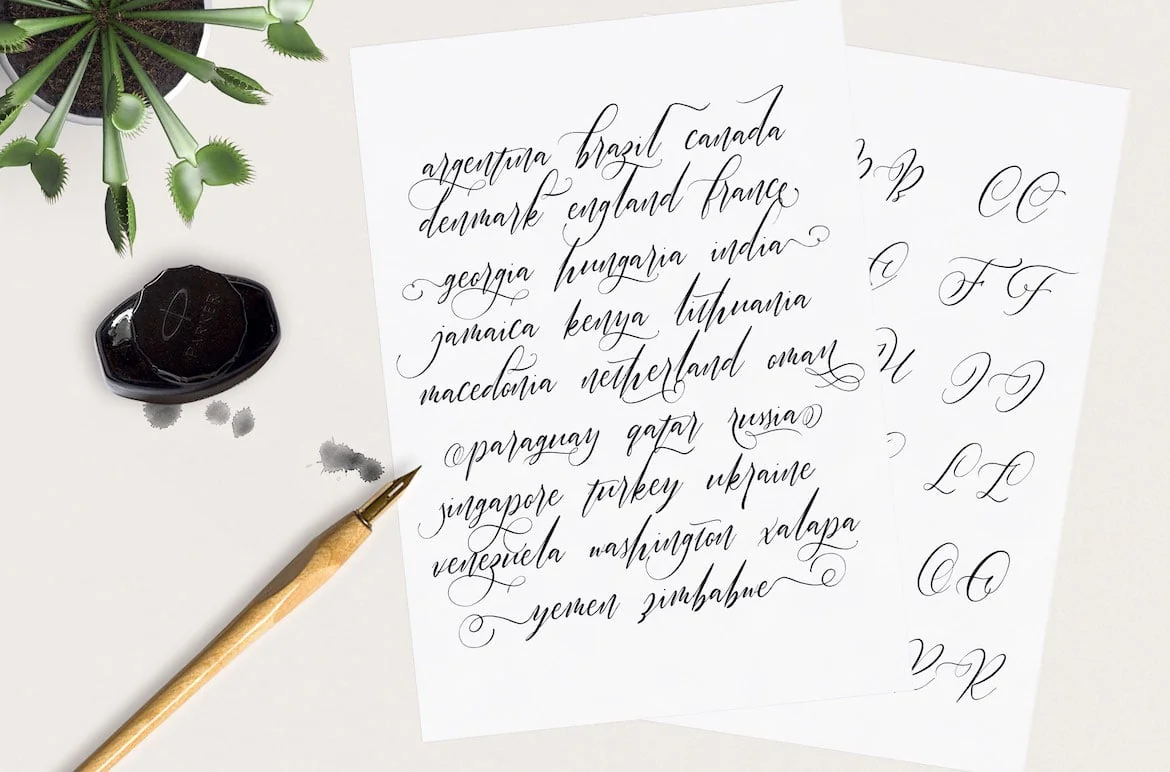 argentina brazil canada
denmark england france
georgia hungaria india
jamaica kenya lithuania
macedonia netherland oman
paraguay qatar russia
singapore turkey ukraine
venezuela washington xalapa
yemen zimbabue
PARKER
B C C
F F
H I I
L L
O O
R R